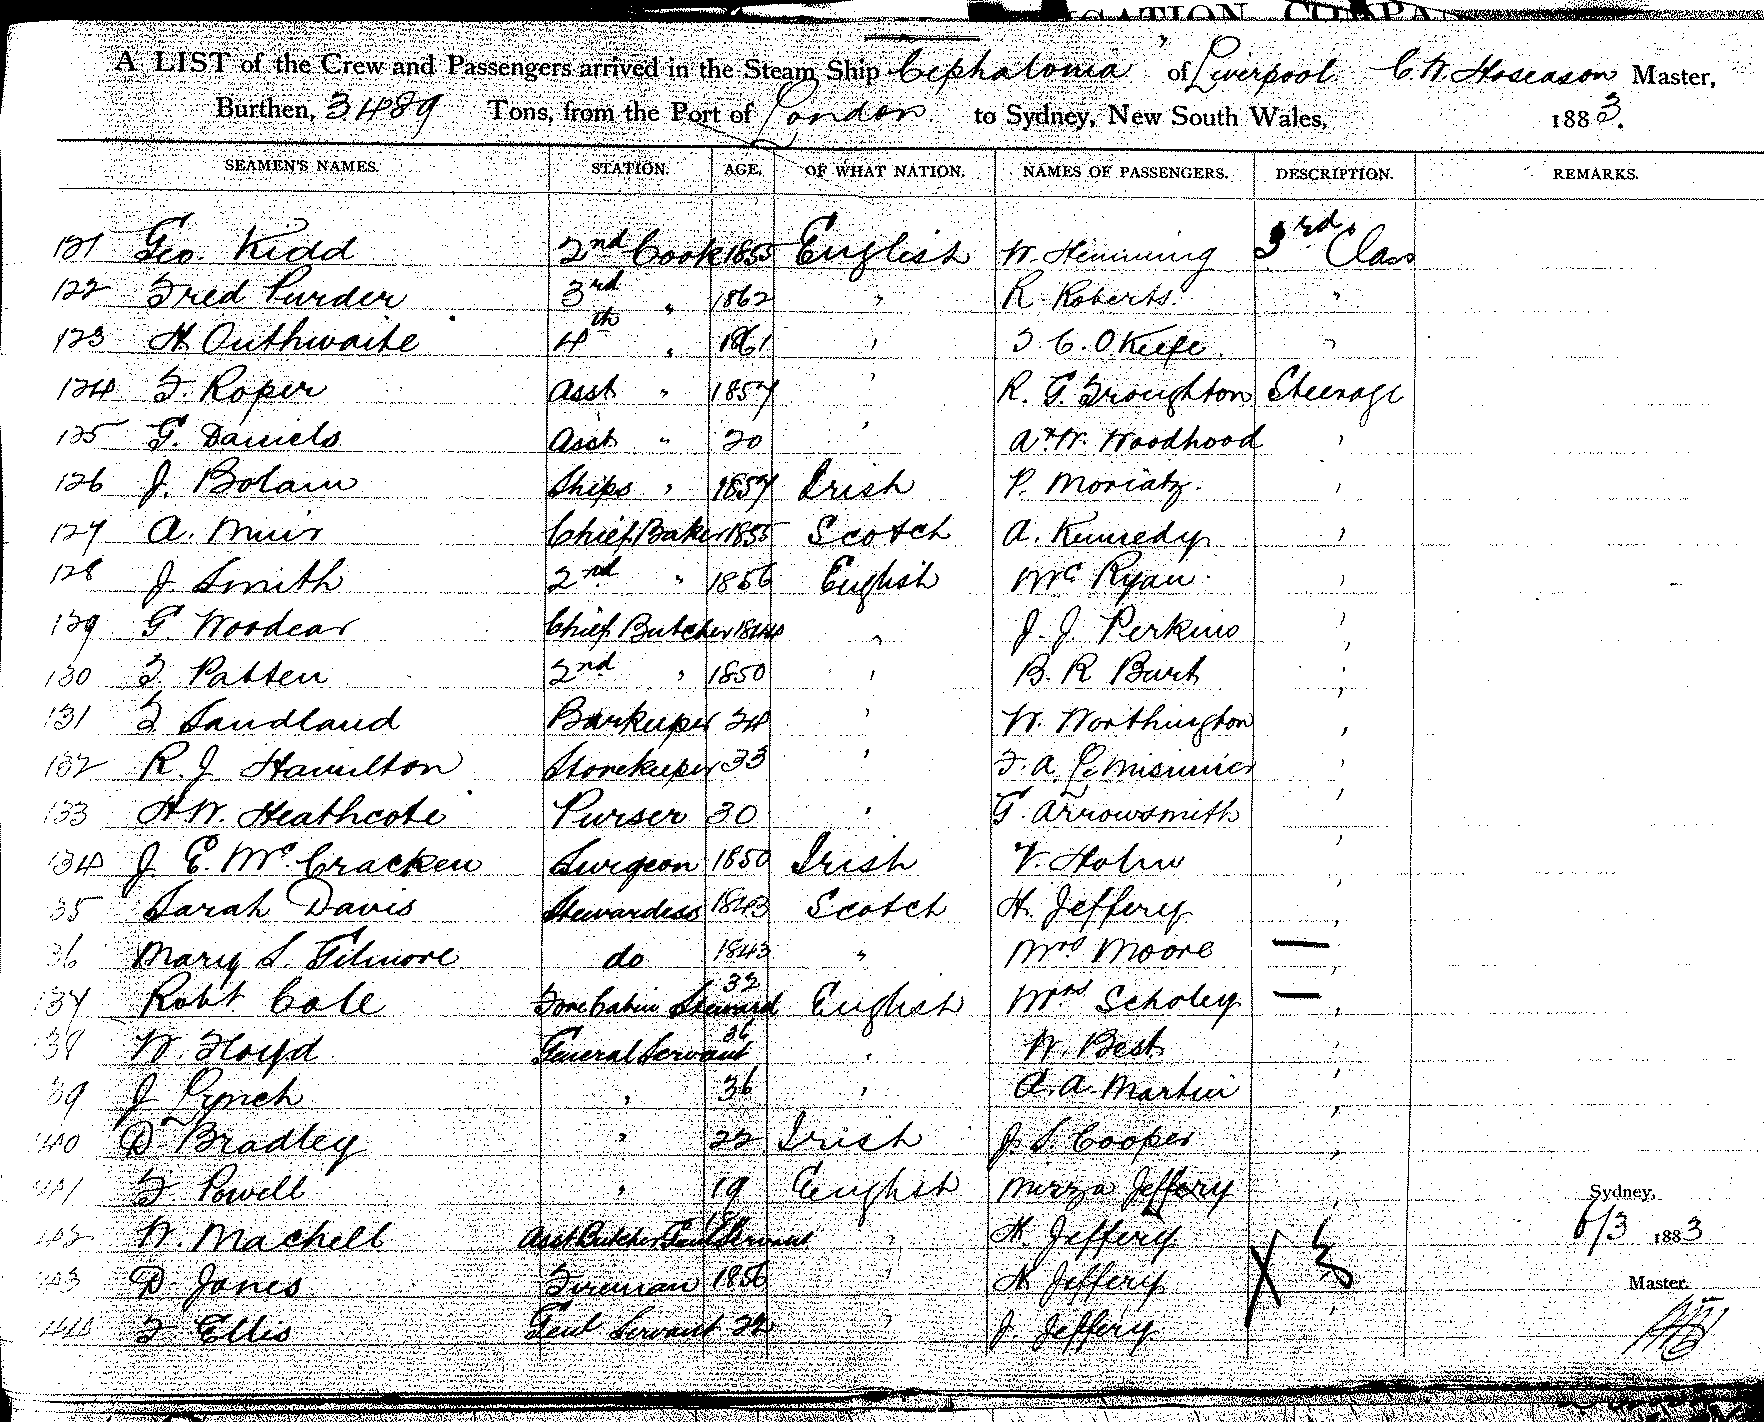 GATION COMPA
A LIST of the Crew and Passengers arrived in the Steam Ship Cephalonia of Liverpool C. W. Hoseason Master,
Burthen, 3489 Tons, from the Port of London to Sydney, New South Wales, 1883.
SEAMEN'S NAMES. STATION. AGE. OF WHAT NATION. NAMES OF PASSENGERS. DESCRIPTION. REMARKS.
121 Geo. Kidd 2nd Cook 1855 English W. Hemming 3rd Class
122 Fred Purder 3rd " 1862 " R. Roberts "
123 H. Outhwaite 4th " 1861 " J. C. O Keefe "
124 F. Roper Asst " 1857 " R. G. Troughton Steerage
125 G. Daniels Asst " 20 " W. Woodhood "
126 J. Bolam Ships " 1857 Irish P. Moriatz "
127 A. Muir Chief Baker 1855 Scotch A. Kennedy "
128 J. Smith 2nd " 1856 English Mc Ryan "
129 G. Woodear Chief Butcher 1844 " J. J. Perkins "
130 F. Patten 2nd " 1850 " B. R Burt "
131 F Sandland Barkeeper 24 " W. Worthington "
132 R. J. Hamilton Storekeeper 33 " F. A. "
133 H W. Heathcote Purser 30 " G. Arrowsmith "
134 J. E. Mc.Cracken Surgeon 1850 Irish V. Holm "
135 Sarah Davis Stewardess 1843 Scotch H. Jeffery "
136 Mary S. Gilmore do 1843 " Mrs Moore "
137 Robt Cole Fore Cabin Steward 32 English Mrs Scholey "
138 W. Floyd General Servant 36 " W. Best "
139 J Lynch " 36 " A. A. Martin "
140 D. Bradley " 22 Irish J. S. Cooper "
141 F. Powell " 19 English Mirza Jeffery "
Sydney,
142 W. Machell Asst Butcher Genl Servant " H. Jeffery 6/3 1883
143 D. Jones Fireman 1856 " H. Jeffery X 3
Master.
144 F Ellis Genl Servant 22 " J. Jeffery "